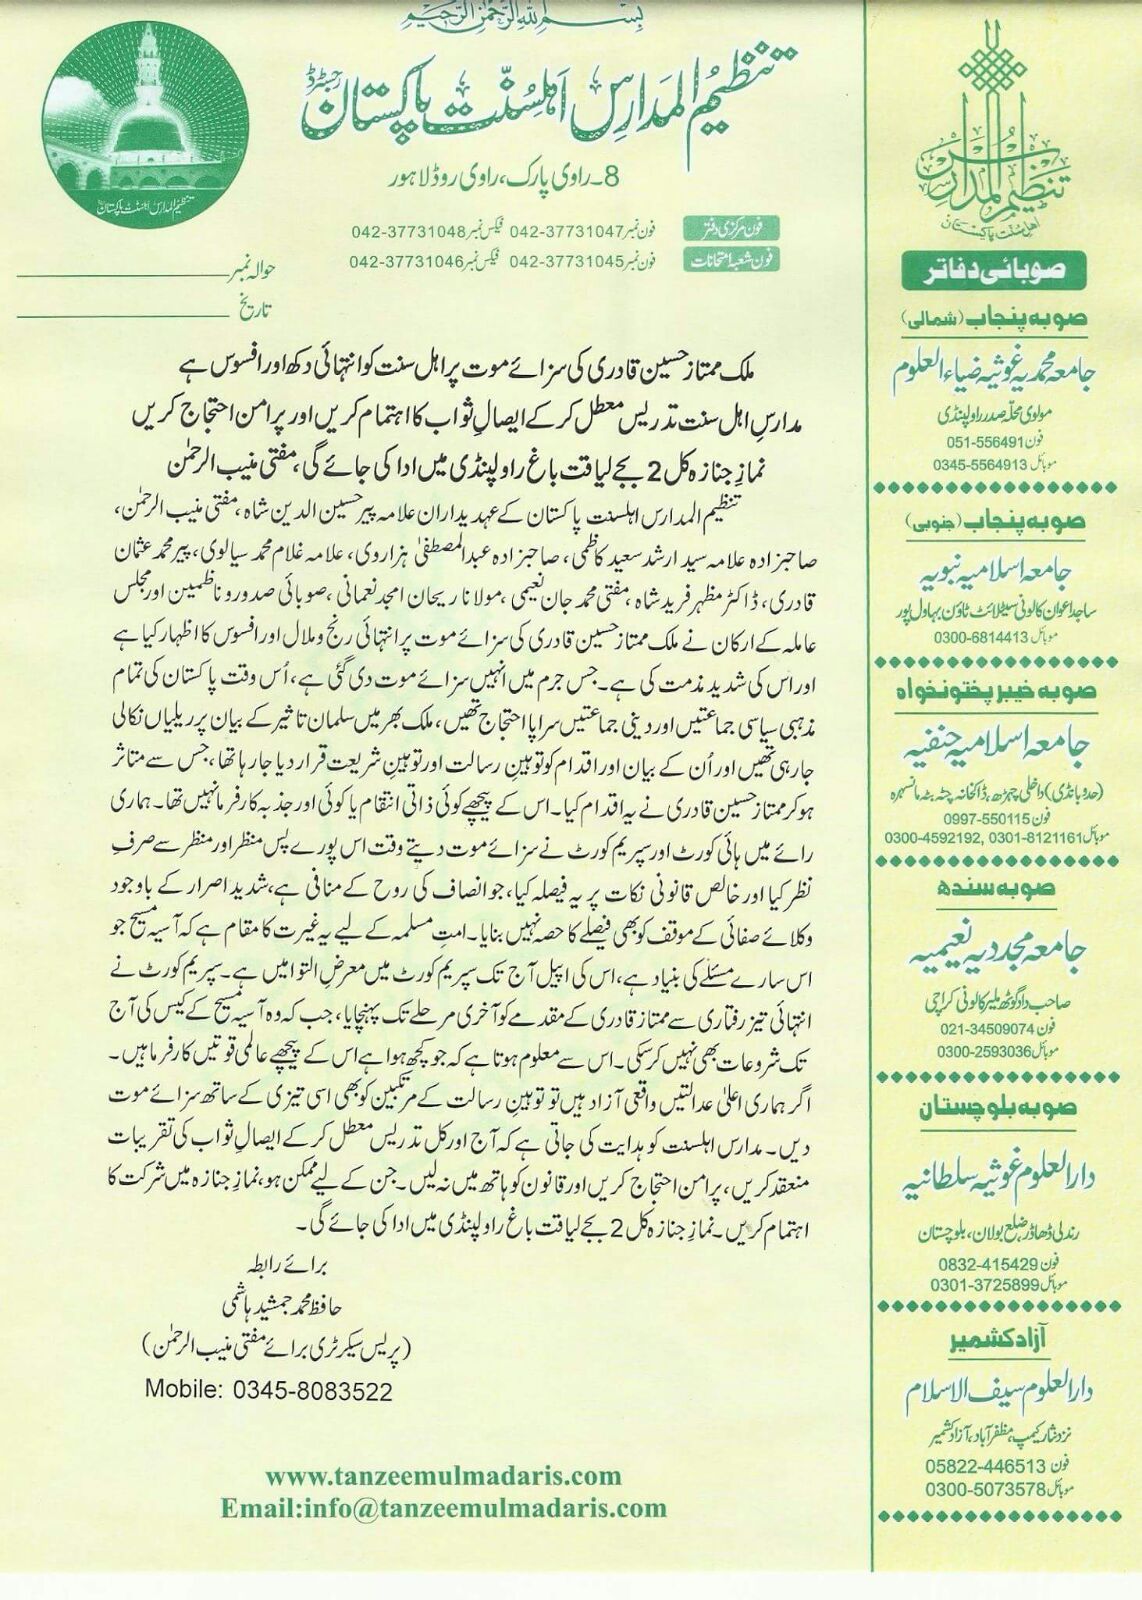 بسم اللہ الرحمٰن الرحیم
تنظیم المدارس اہلسنت پاکستان رجسٹرڈ
8۔راوی پارک، راوی روڈ لاہور
فون مرکزی دفتر فون نمبر 042-37731047 فیکس نمبر 042-37731048
فون شعبۂ امتحانات فون نمبر 042-37731045 فیکس نمبر 042-37731046
حوالہ نمبر
تاریخ
تنظیم المدارس اہلسنت پاکستان
ملک ممتاز حسین قادری کی سزائے موت پر اہل سنت کو انتہائی دکھ اور افسوس ہے
مدارسِ اہل سنت تدریس معطل کر کے ایصالِ ثواب کا اہتمام کریں اور پر امن احتجاج کریں
نمازِ جنازہ کل 2 بجے لیاقت باغ راولپنڈی میں ادا کی جائے گی، مفتی منیب الرحمٰن
تنظیم المدارس اہلسنت پاکستان کے عہدیداران علامہ پیر حسین الدین شاہ، مفتی منیب الرحمٰن،
صاحبزادہ علامہ سید ارشد سعید کاظمی، صاحبزادہ عبدالمصطفیٰ ہزاروی، علامہ غلام محمد سیالوی، پیر محمد عثمان
قادری، ڈاکٹر مظہر فرید شاہ، مفتی محمد جان نعیمی، مولانا ریحان امجد نعمانی، صوبائی صدور و ناظمین اور مجلس
عاملہ کے ارکان نے ملک ممتاز حسین قادری کی سزائے موت پر انتہائی رنج و ملال اور افسوس کا اظہار کیا ہے
اور اس کی شدید مذمت کی ہے۔ جس جرم میں انہیں سزائے موت دی گئی ہے، اُس وقت پاکستان کی تمام
مذہبی سیاسی جماعتیں اور دینی جماعتیں سراپا احتجاج تھیں، ملک بھر میں سلمان تاثیر کے بیان پر ریلیاں نکالی
جا رہی تھیں اور اُن کے بیان اور اقدام کو توہینِ رسالت اور توہینِ شریعت قرار دیا جا رہا تھا، جس سے متاثر
ہو کر ممتاز حسین قادری نے یہ اقدام کیا۔ اس کے پیچھے کوئی ذاتی انتقام یا کوئی اور جذبہ کارفرما نہیں تھا۔ ہماری
رائے میں ہائی کورٹ اور سپریم کورٹ نے سزائے موت دیتے وقت اس پورے پس منظر اور منظر سے صرفِ
نظر کیا اور خالص قانونی نکات پر یہ فیصلہ کیا، جو انصاف کی روح کے منافی ہے، شدید اصرار کے باوجود
وکلائے صفائی کے موقف کو بھی فیصلے کا حصہ نہیں بنایا۔ امتِ مسلمہ کے لیے یہ غیرت کا مقام ہے کہ آسیہ مسیح جو
اس سارے مسئلے کی بنیاد ہے، اس کی اپیل آج تک سپریم کورٹ میں معرضِ التوا میں ہے۔ سپریم کورٹ نے
انتہائی تیز رفتاری سے ممتاز قادری کے مقدمے کو آخری مرحلے تک پہنچایا، جب کہ وہ آسیہ مسیح کے کیس کی آج
تک شروعات بھی نہیں کرسکی۔ اس سے معلوم ہوتا ہے کہ جو کچھ ہوا ہے اس کے پیچھے عالمی قوتیں کارفرما ہیں۔
اگر ہماری اعلیٰ عدالتیں واقعی آزاد ہیں تو توہینِ رسالت کے مرتکبین کو بھی اسی تیزی کے ساتھ سزائے موت
دیں۔ مدارس اہلسنت کو ہدایت کی جاتی ہے کہ آج اور کل تدریس معطل کر کے ایصالِ ثواب کی تقریبات
منعقد کریں، پر امن احتجاج کریں اور قانون کو ہاتھ میں نہ لیں۔ جن کے لیے ممکن ہو، نمازِ جنازہ میں شرکت کا
اہتمام کریں۔ نمازِ جنازہ کل 2 بجے لیاقت باغ راولپنڈی میں ادا کی جائے گی۔
برائے رابطہ
حافظ محمد جمشید ہاشمی
(پریس سیکرٹری برائے مفتی منیب الرحمٰن)
Mobile: 0345-8083522
www.tanzeemulmadaris.com
Email:info@tanzeemulmadaris.com
تنظیم المدارس
اہل سنت پاکستان
صوبائی دفاتر
صوبہ پنجاب (شمالی)
جامعہ محمدیہ غوثیہ ضیاء العلوم
مولوی محلہ صدر راولپنڈی
فون 051-556491
موبائل 0345-5564913
صوبہ پنجاب (جنوبی)
جامعہ اسلامیہ نبویہ
ساجد اعوان کالونی سیٹلائٹ ٹاؤن بہاول پور
موبائل 0300-6814413
صوبہ خیبر پختونخواہ
جامعہ اسلامیہ حنفیہ
(حدو بانڈی) داخلی چہڑھ، ڈاکخانہ چٹہ بٹہ مانسہرہ
فون 0997-550115
موبائل 0300-4592192, 0301-8121161
صوبہ سندھ
جامعہ مجددیہ نعیمیہ
صاحب داد گوٹھ ملیر کالونی کراچی
فون 021-34509074
موبائل 0300-2593036
صوبہ بلوچستان
دارالعلوم غوثیہ سلطانیہ
رندلی ڈھاڈر ضلع بولان، بلوچستان
فون 0832-415429
موبائل 0301-3725899
آزاد کشمیر
دارالعلوم سیف الاسلام
نزد نثار کیمپ، مظفر آباد، آزاد کشمیر
فون 05822-446513
موبائل 0300-5073578